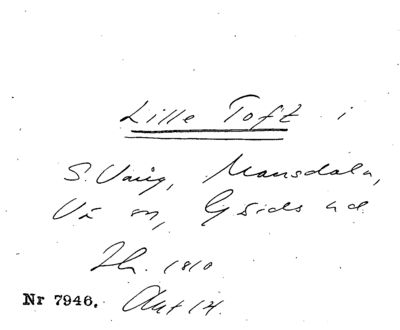 Lille Toft i
S. Vang, Mansdala,
Vä sn, Gärds hd
Th. 1810
Nr 7946. Akt 14.